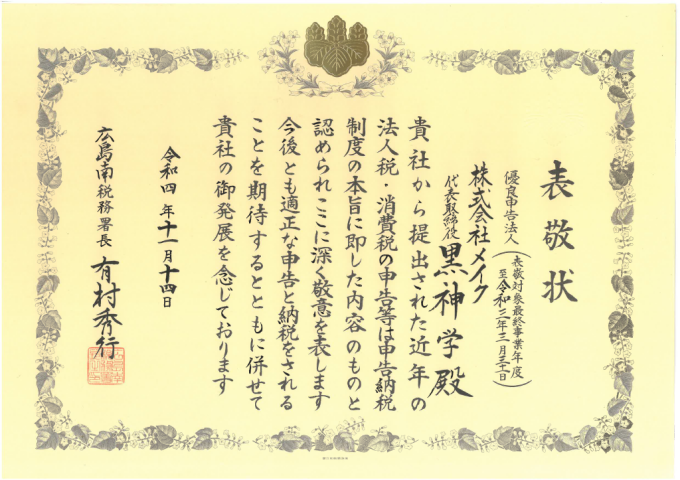 表敬状
優良申告法人
(表敬対象最終事業年度
至令和三年三月三十一日)
株式会社メイク
代表取締役 黒神学殿
貴社から提出された近年の
法人税・消費税の申告等は申告納税
制度の本旨に即した内容のものと
認められここに深く敬意を表します
今後とも適正な申告と納税をされる
ことを期待するとともに併せて
貴社の御発展を念じております
令和四年十一月十四日
広島南税務署長 有村秀行